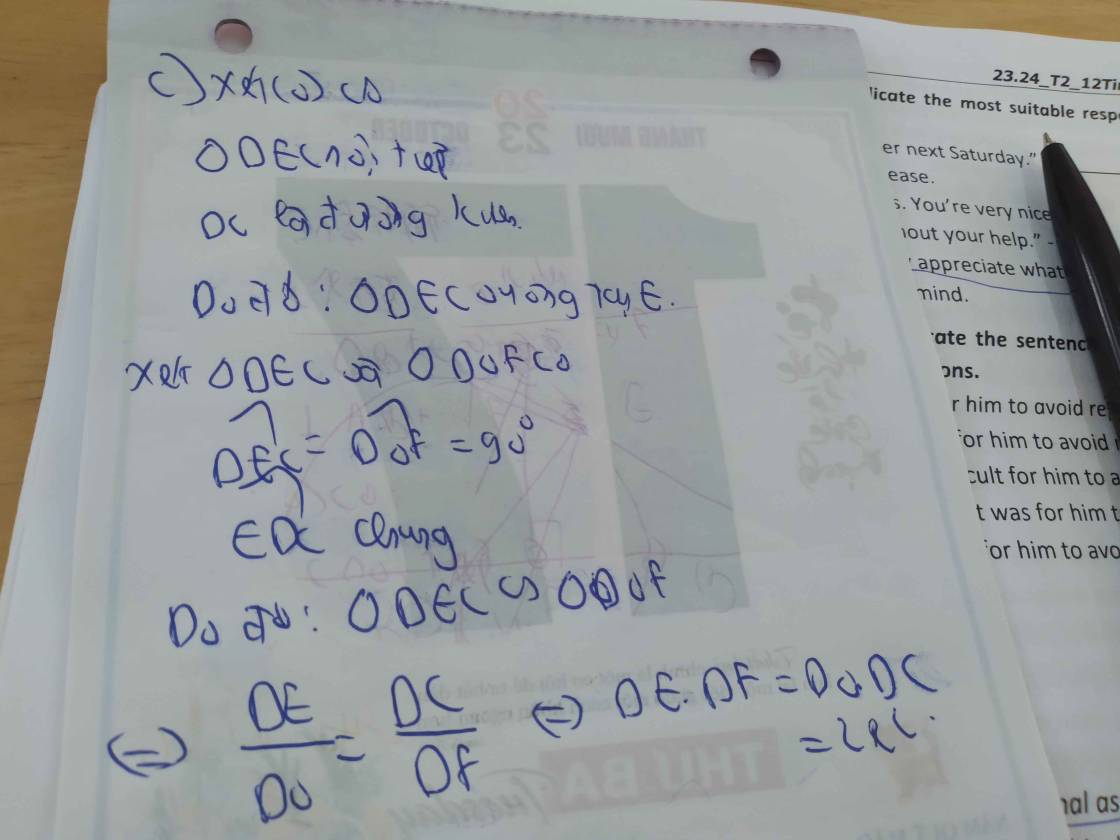 c) Xét (O) có
△DEC nội tiếp
DC là đường kính.
Do đó: △DEC vuông tại E.
Xét △DEC và △DOF có
DEC = DOF = 90°
EDC chung
Do đó: △DEC ∽ △DOF
(=) DE/DO = DC/DF (=) DE.DF = DO.DC
= 2R².
23.24_T2_12Ti
licate the most suitable resp
er next Saturday."
ease.
s. You're very nice
out your help." -
appreciate what
mind.
ate the sentenc
ons.
r him to avoid re
for him to avoid
cult for him to a
t was for him t
for him to avo
nal as
20
23
OCTOBER
THÁNG MƯỜI
17
THỨ BA
Tuesday